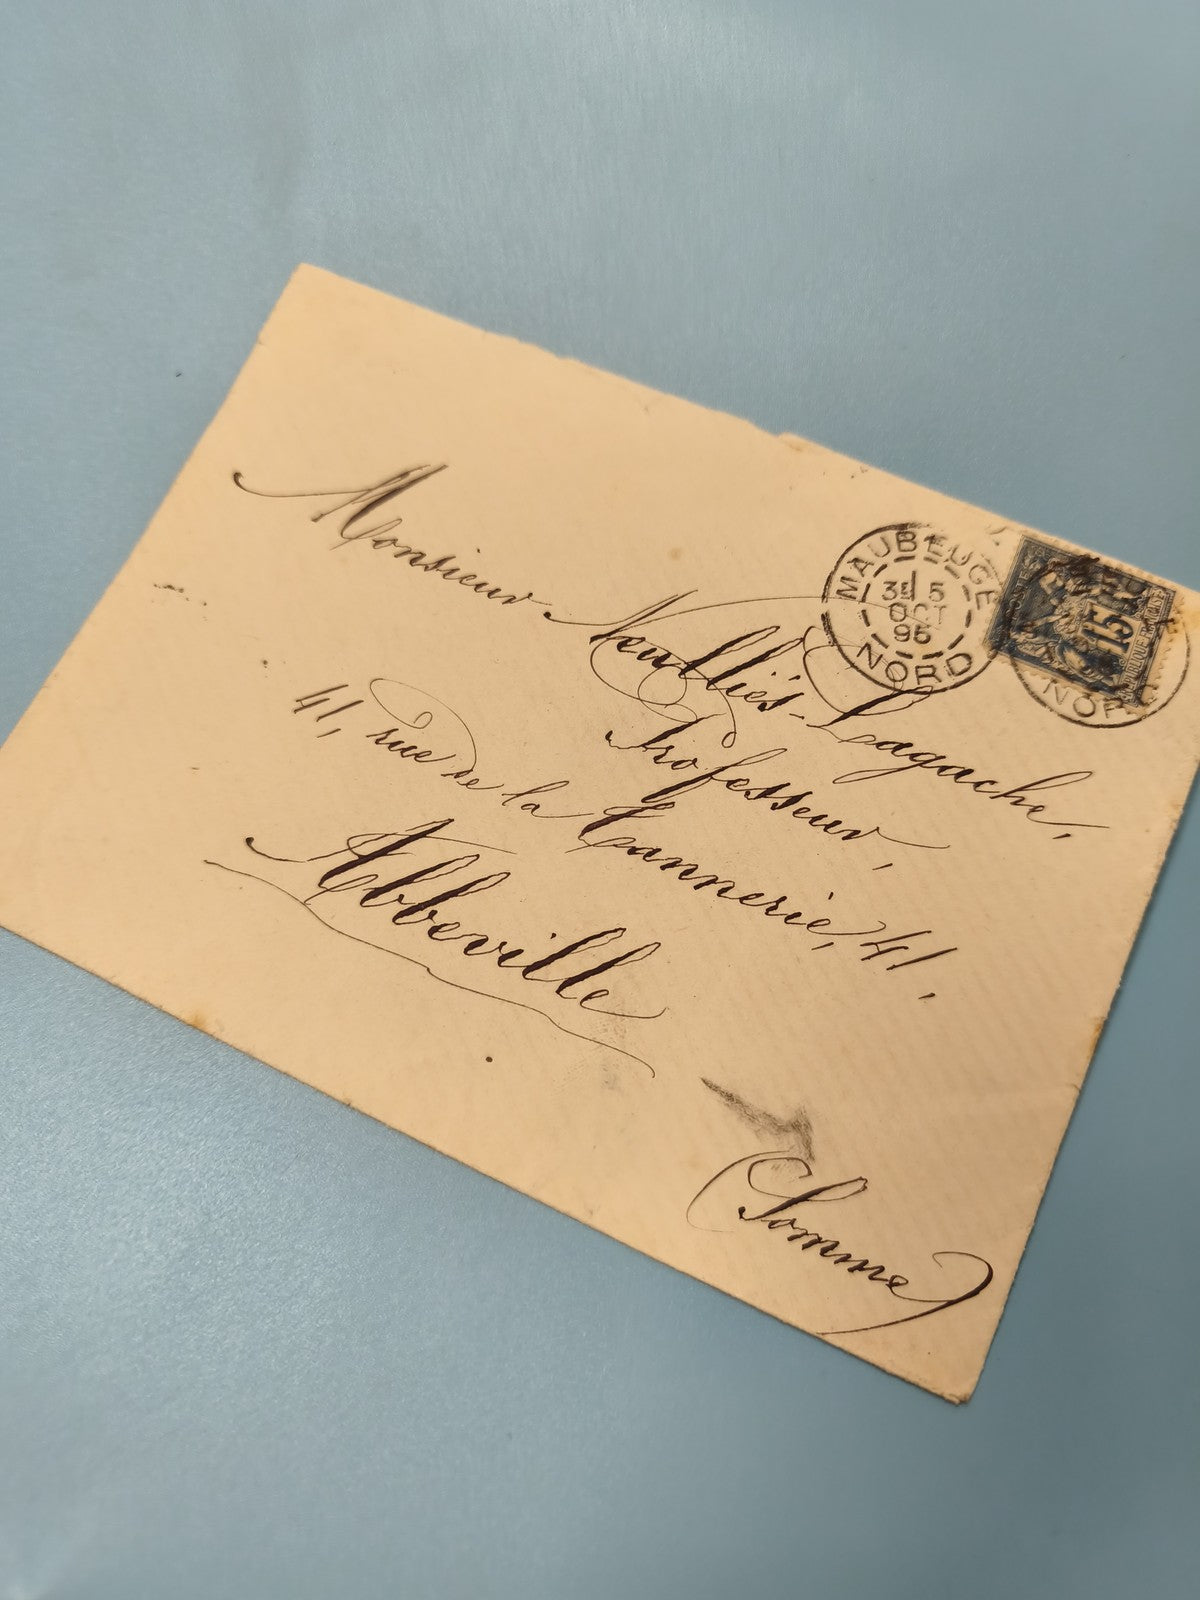 MAUBEUGE
3E 5
OCT
95
NORD
15
REPUBLIQUE FRANCAISE
NORD
Monsieur Neulliès-Lagache,
Professeur,
41, rue de la Tannerie, 41.
Abbeville
(Somme)